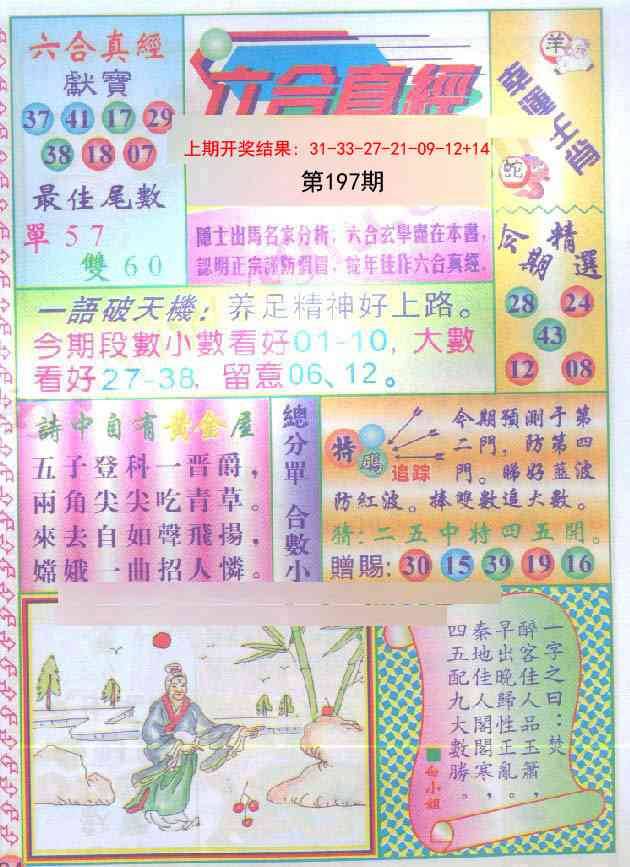 六合真經
獻寶
37 41 17 29
38 18 07
最佳尾數
單57
雙60
六合真經
上期开奖结果: 31-33-27-21-09-12+14
第197期
隱士出馬名家分析，六合玄學盡在本書，
認明正宗謹防假冒，蛇年佳作六合真經。
羊
幸運生肖
蛇
今期精選
28 24
43
12 08
一語破天機：养足精神好上路。
今期段數小數看好01-10，大數
看好27-38，留意06、12。
詩中自有黃金屋
五子登科一晋爵，
兩角尖尖吃青草。
來去自如聲飛揚，
嫦娥一曲招人憐。
總分單 合數小
特碼
追踪
今期預測于第
二門，防第四
門。睇好藍波
防紅波。捧雙數追大數。
猜：二五中特四五開。
贈賜：30 15 39 19 16
一字之曰：焚
醉客佳人品玉簫，
早出晚歸性正亂。
秦地佳人閣閣寒，
四五配九大數勝
白小姐